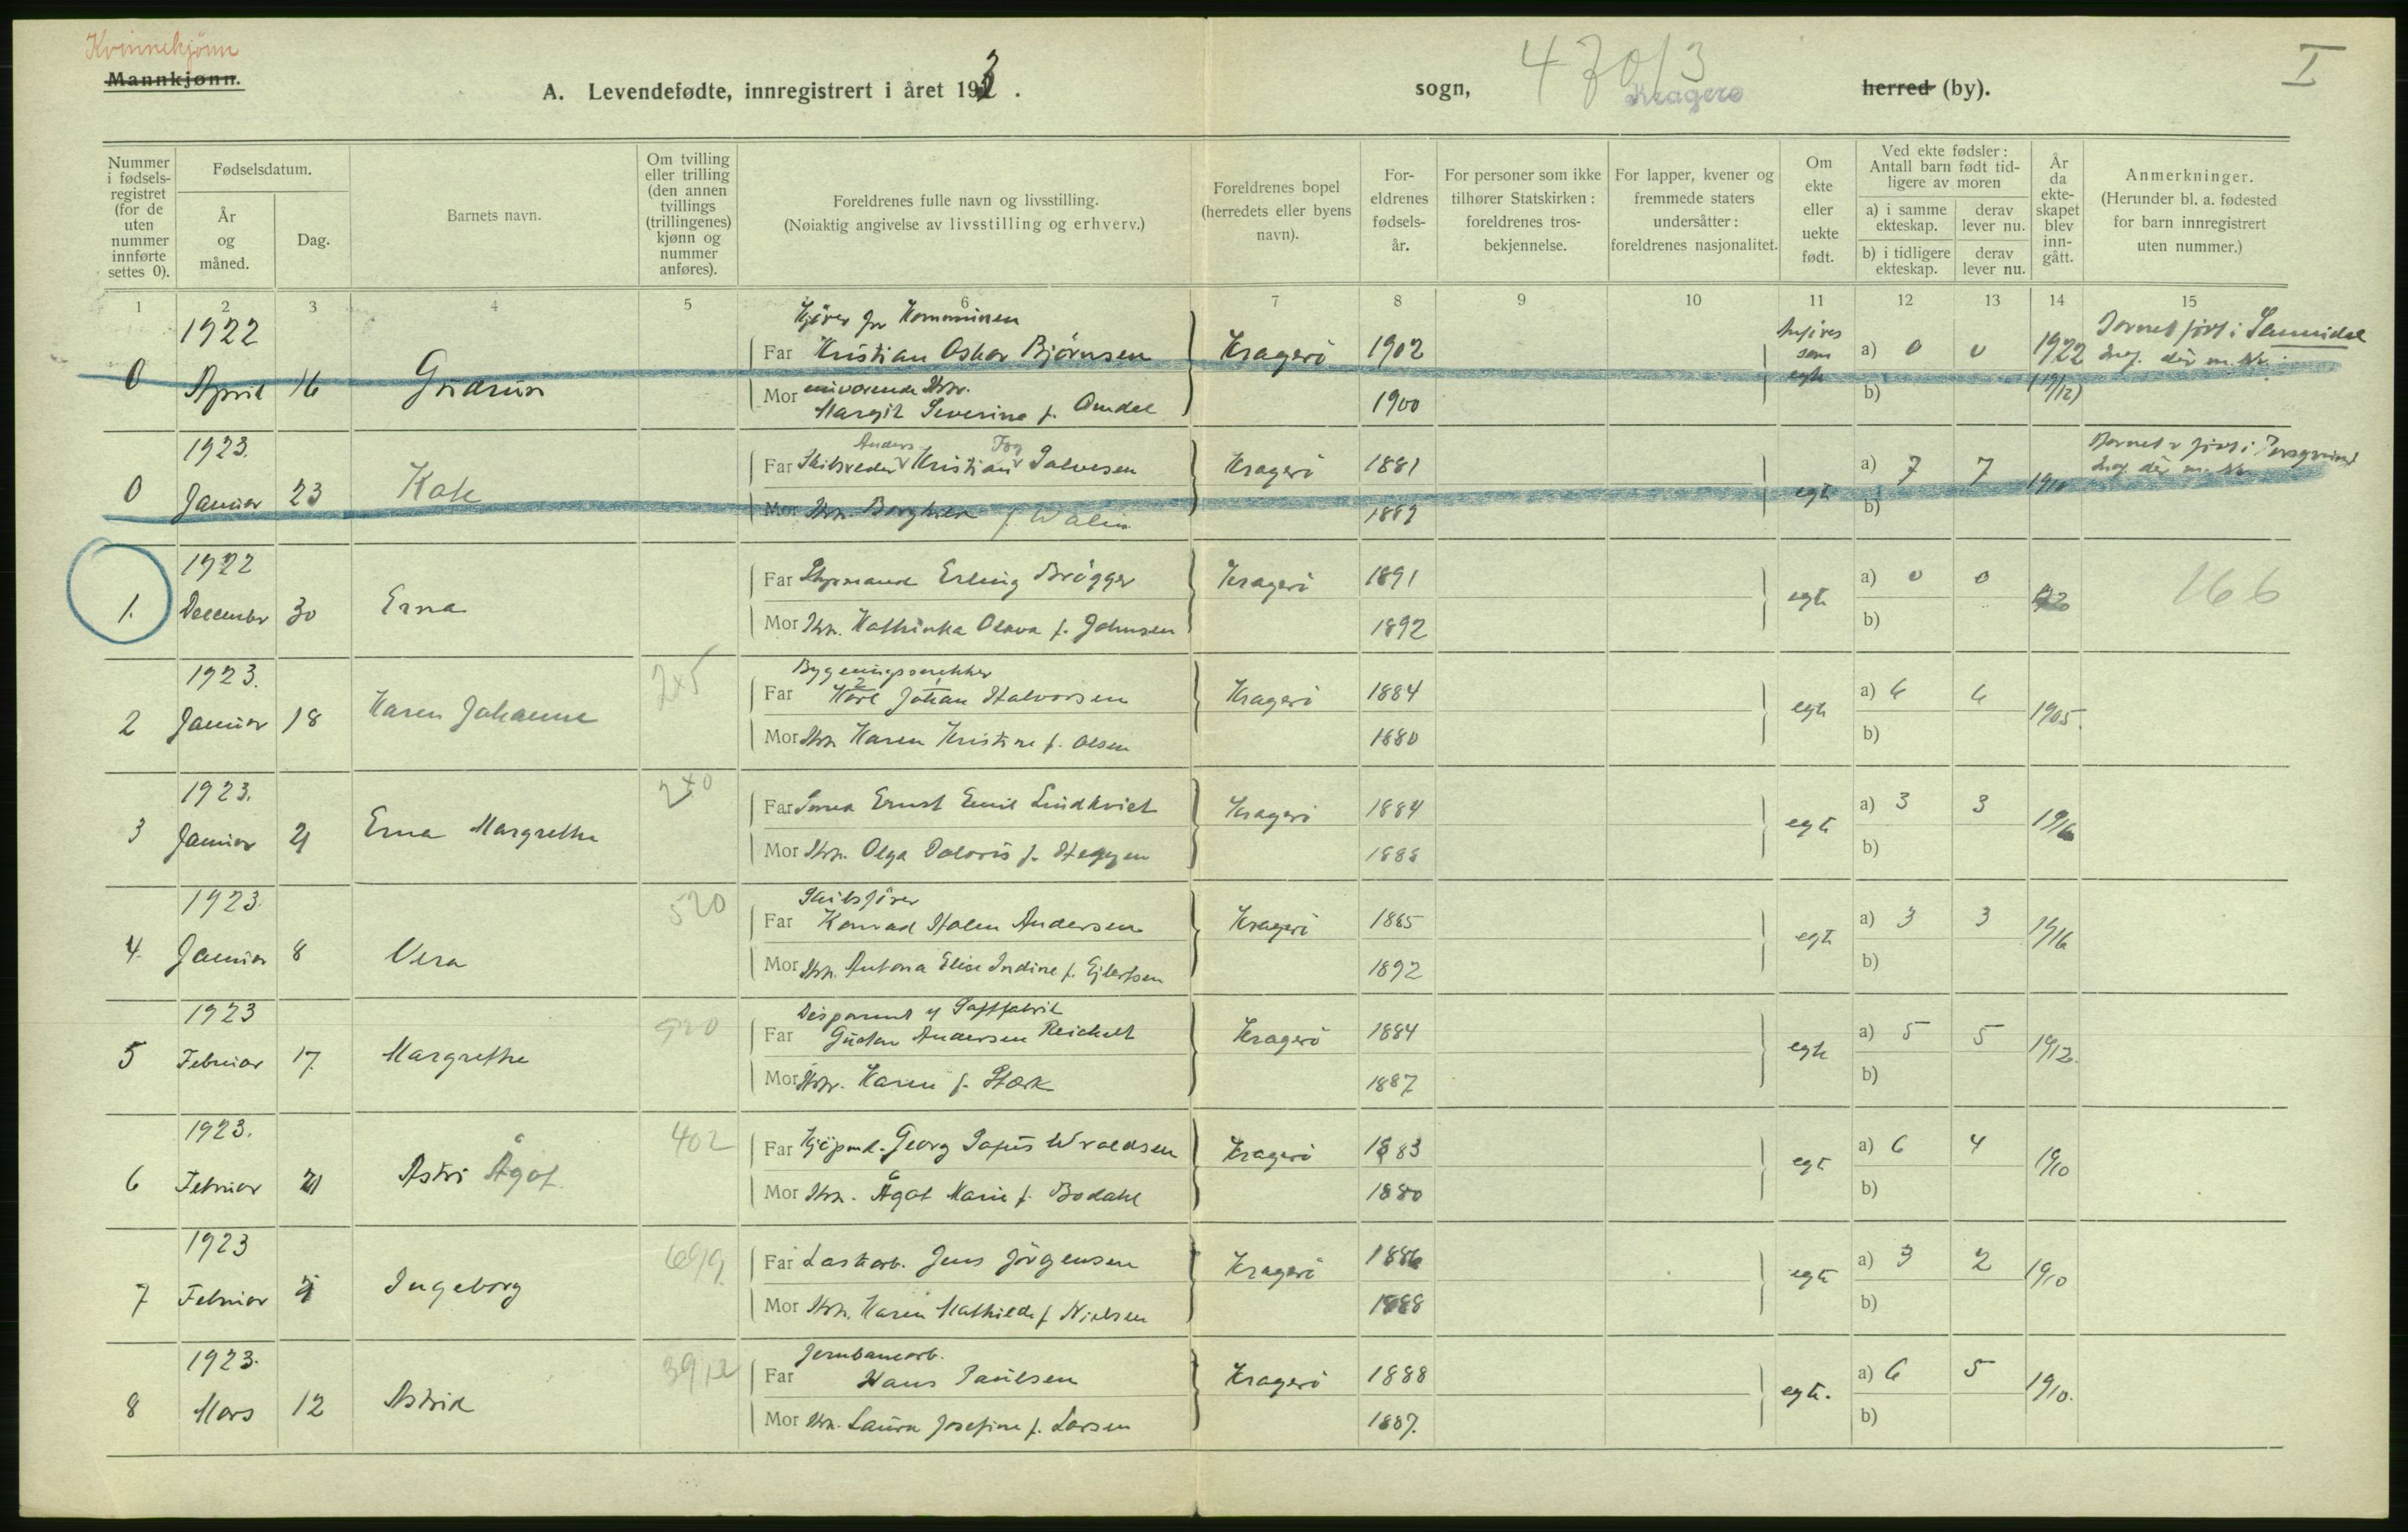 Kvinnekjønn
Mannkjønn.
A. Levendefødte, innregistrert i året 1923.
sogn,
47013
Kragerø
herred (by).
I
Nummer i fødselsregistret (for de uten nummer innførte settes 0).
Fødselsdatum.
År og måned.
Dag.
Barnets navn.
Om tvilling eller trilling (den annen tvillings (trillingenes) kjønn og nummer anføres).
Foreldrenes fulle navn og livsstilling.
(Nøiaktig angivelse av livsstilling og erhverv.)
Foreldrenes bopel (herredets eller byens navn).
Foreldrenes fødselsår.
For personer som ikke tilhører Statskirken: foreldrenes trosbekjennelse.
For lapper, kvener og fremmede staters undersåtter: foreldrenes nasjonalitet.
Om ekte eller uekte født.
Ved ekte fødsler: Antall barn født tidligere av moren
a) i samme ekteskap.
derav lever nu.
b) i tidligere ekteskap.
derav lever nu.
År da ekteskapet blev inngått.
Anmerkninger.
(Herunder bl. a. fødested for barn innregistrert uten nummer.)
1 2 3 4 5 6 7 8 9 10 11 12 13 14 15
1922
0 April 16 Gudrun
Kjører for Kommunen
Far Kristian Oskar Bjørnsen Kragerö 1902
Mor nuværende Hstr. Margit Severine f. Omdal 1900
Angives som egte a) 0 0 b) 1922 (19/12)
Barnet født i Sannidal
Indf. der m. Nr.
1923.
0 Januar 23 Kate
Far Skibsreder Anders Kristian Foy Salvesen Kragerö 1881
Mor Hstr. Borghild f. Walin 1889
egte a) 7 7 b) 1910
Barnet er født i Porsgrund
Indf. der m. Nr.
1922
1. December 30 Erna
Far Styrmand Erling Brögger Kragerö 1891
Mor Hstr. Kathinka Olava f. Johnsen 1892
egte a) 0 0 b) 1920
166
1923.
2 Januar 18 Karen Johanne
245
Bygningssnekker
Far Karl Johan Halvorsen Kragerö 1884
Mor Hstr. Karen Kristine f. Olsen 1880
egte a) 6 6 b) 1905.
1923.
3 Januar 21 Erna Margrethe
240
Far Ernst Emil Lindkvist Kragerö 1884
Mor Hstr. Olga Doloris f. Heggen 1888
egte a) 3 3 b) 1916
1923.
4. Januar 8 Vera
520
Skibsfører
Far Konrad Holm Andersen Kragerö 1885
Mor Hstr. Antona Elise Indine f. Ejlertsen 1892
egte a) 3 3 b) 1916
1923
5 Februar 17. Margrethe
920
Disponent v Saftfabrik
Far Gustav Andersen Reichelt Kragerö 1884
Mor Hstr. Karen f. Stærk 1887
egte a) 5 5 b) 1912.
1923.
6 Februar 21 Astri Ågot
402
Far Kjöpmd. Georg Wroldsen Kragerö 1883
Mor Hstr. Ågot Marie f. Bodahl 1880
egte a) 6 4 b) 1910
1923
7 Februar Ingeborg
699
Far Lastarb. Jens Jörgensen Kragerö 1886
Mor Hstr. Karen Mathilde f. Nielsen 1888
egte a) 3 2 b) 1910
1923.
8 Mars 12 Astrid
3912
Jernbanearb.
Far Hans Paulsen Kragerö 1888
Mor Hstr. Laura Josefine f. Larsen 1887.
egte. a) 6 5 b) 1910.